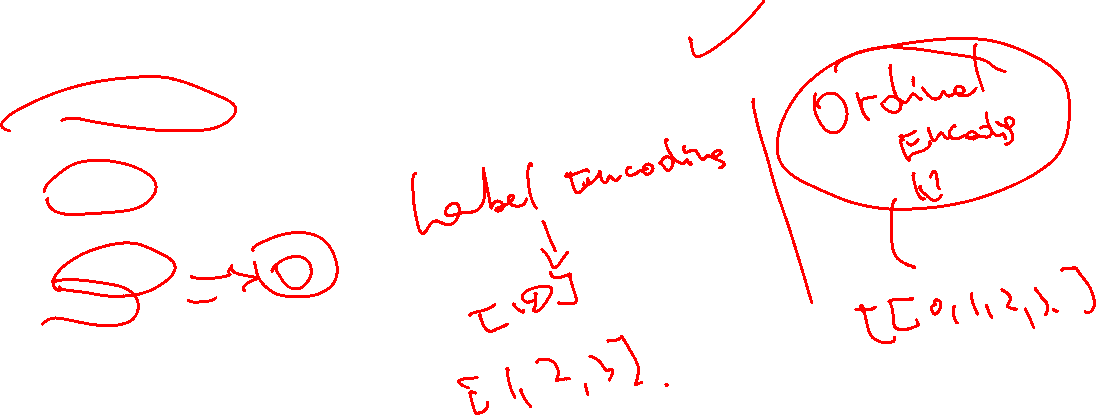 Label Encoding
[1,2,3].
Ordinal
Encoding
[[0,1,2,3.]